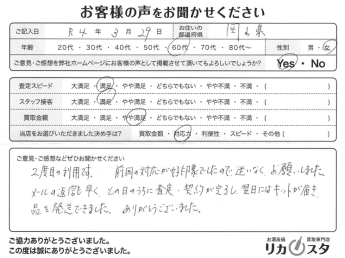 お客様の声をお聞かせください
ご記入日 R 4 年 3 月 29 日 お住いの都道府県 県
年齢 20代・30代・40代・50代・60代・70代・80代〜 性別 男・女
ご意見・ご感想を弊社ホームページにお客様の声として掲載させて頂いてもよろしいでしょうか? Yes・No
査定スピード 大満足・満足・やや満足・どちらでもない・やや不満・不満・( )
スタッフ接客 大満足・満足・やや満足・どちらでもない・やや不満・不満・( )
買取金額 大満足・満足・やや満足・どちらでもない・やや不満・不満・( )
当店をお選びいただきました決め手は? 買取金額・対応力・利便性・スピード・その他( )
ご意見・ご感想などぜひお聞かせください
2度目の利用です。前回の対応が好印象でしたので迷いなくお願いしました
メールの返信も早く、その日のうちに査定・契約が完了し、翌日にはキットが届き
品を発送できました。ありがとうございました。
ご協力ありがとうございました。
この度は誠にありがとうございました。
お酒高価 買取専門店
リカスタ